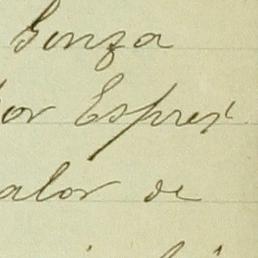 Gonza
or Espres
alor de